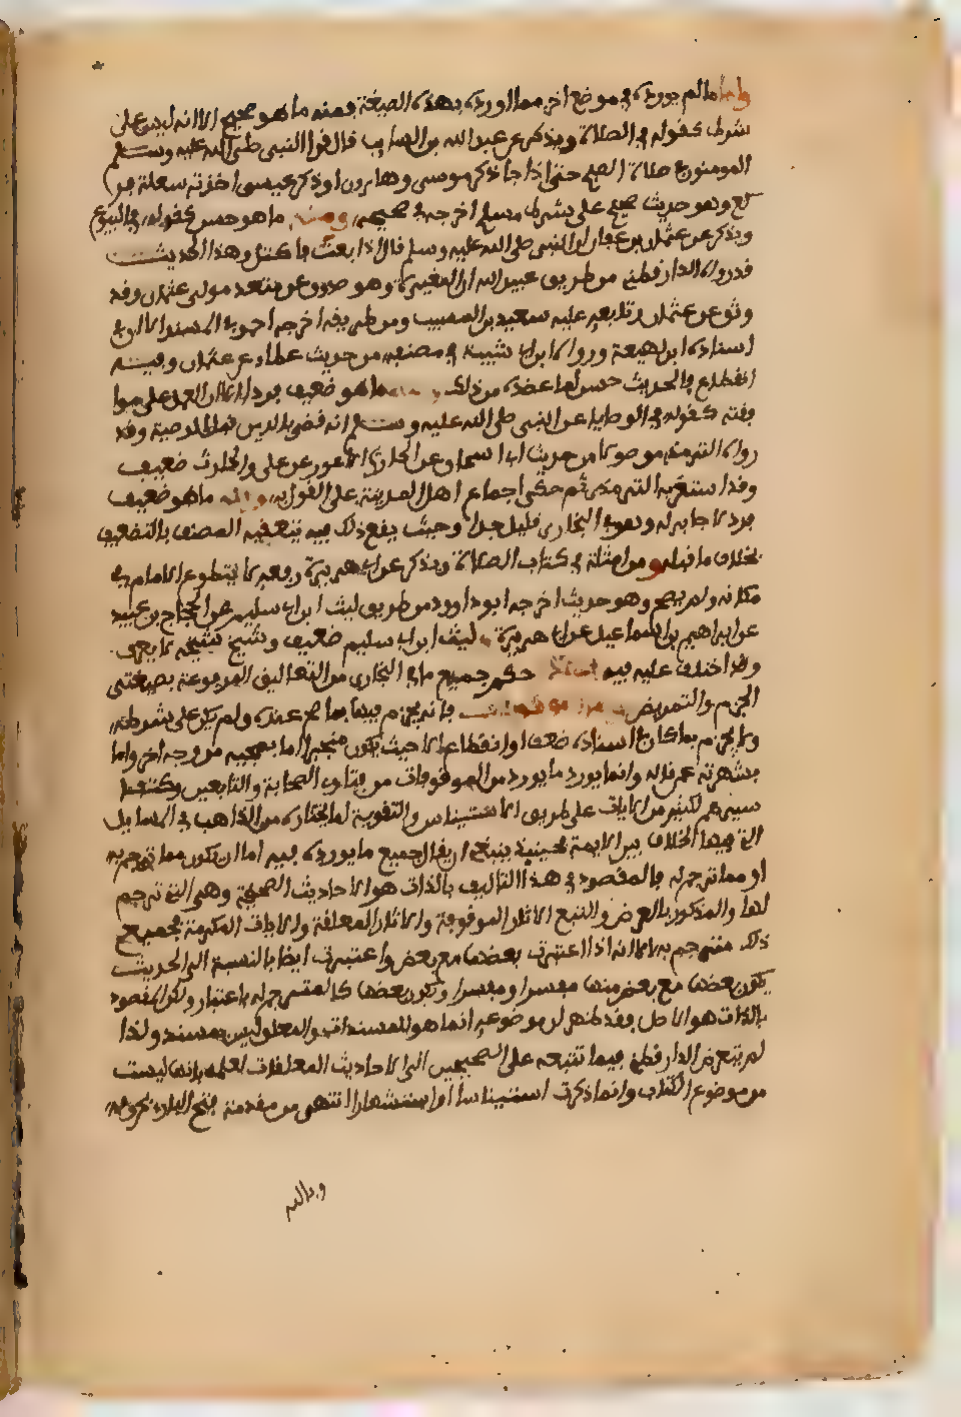 واما ما لم يورده في موضع اخر مما اورده بهذه الصيغة فمنه ما هو صحيح الا انه ليس على
شرطه كقوله في الصلاة ويذكر عن عبد الله بن السايب قال قرا النبي صلى الله عليه وسلم
المومنون في صلاة الصبح حتى اذا جا ذكر موسى وهارون او ذكر عيسى اخذته سعلة فر
كع وهو حديث صحيح على شرط مسلم اخرجه في صحيحه ومنه ما هو حسن كقوله في البيوع
ويذكر عن عثمان بن عفان ان النبي صلى الله عليه وسلم قال اذا بعت فاكتل وهذا الحديث
قد رواه الدارقطني من طريق عبيد الله ان المغيرة وهو صدوق عن منقد مولى عثمان وقد
وثق عن عثمان وتابعه عليه سعيد بن المسيب ومن طريقه اخرجه احمد في المسند الا ان في
اسناده ابن لهيعة ورواه ابن ابي شيبة في مصنفه من حديث عطاء عن عثمان وفيه
انقطاع فالحديث حسن لما عضده من ذلك ما هو ضعيف فرد الا ان العمل على موا
فقته كقوله في الوصايا عن النبي صلى الله عليه وسلم انه قضى بالدين قبل الوصية وقد
رواه الترمذي موصولا من حديث ابي اسحاق عن الحارث الاعور عن علي والحارث ضعيف
وقد استغربه الترمذي ثم حكى اجماع اهل المدينة على القول به ما هو ضعيف
فرد لا جابر له وهو في البخاري قليل جدا وحيث يقع ذلك فيه يتعقبه المصنف بالتضعيف
بخلاف ما قبله ومن امثلته في كتاب الصلاة ويذكر عن ابي هريرة رفعه لا يتطوع الامام في
مكانه ولم يصح وهو حديث اخرجه ابو داوود من طريق ليث ابن ابي سليم عن الحجاج بن عبيد
عن ابراهيم بن اسماعيل عن ابي هريرة وليث ابن ابي سليم ضعيف وشيخ شيخه لا يعرف
وقد اختلف عليه فيه حكم جميع ما في البخاري من التعاليق المرفوعة بصيغتي
الجزم والتمريض فانه يجزم فيها بما صح عنده ولو لم يكن على شرطه
ولا يجزم بما كان في اسناده ضعف او انقطاع الا حيث يكون منجبرا اما بمجيئه من وجه اخر واما
بشهرته عمن قاله وانما يورد ما يورد من الموقوفات من فتاوى الصحابة والتابعين وكتفا
سيرهم لكثير من الايات على طريق الاستيناس والتقوية لما يختاره من المذاهب في المسايل
التي فيها الخلاف بين الايمة فحينئذ ينبغي ان يقال جميع ما يورده فيه اما ان يكون مما ترجم به
او مما ترجم له فالمقصود في هذا التاليف بالذات هو الاحاديث الصحيحة وهي التي ترجم
لها والمذكور بالعرض والتبع الاثار الموقوفة والاثار المعلقة والايات المكرمة فجميع
ذلك مترجم به الا انه اذا اعتبرت بعضها مع بعض واعتبرت ايضا بالنسبة الى الحديث
يكون بعضها مع بعض منها مفسر ومفسرا ويكون بعضها كالمترجم له باعتبار ولكن المقصود
بالذات هو الاصل وقد ظهر ان موضوعه انما هو للمسندات والمعلق ليس بمسند ولذا
لم يتعرض الدارقطني فيما تتبعه على الصحيحين الى الاحاديث المعلقات لعلمه بانها ليست
من موضوع الكتاب وانما ذكرت استيناسا او استشهادا انتهى من مقدمة فتح البارى بحروفه
وبالله